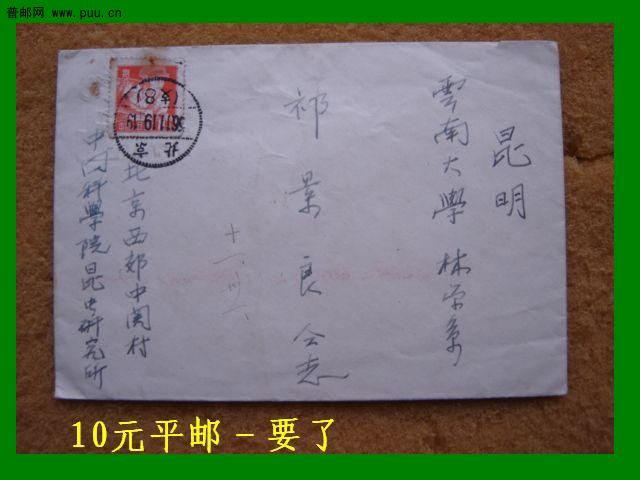 普邮网 www.puu.cn
昆明
雲南大學 林学系
祁景良 同志
十一、廿八
北京西郊中関村
中国科學院昆虫研究所
北京
56.11.19.19
(支8)
10元平邮－要了